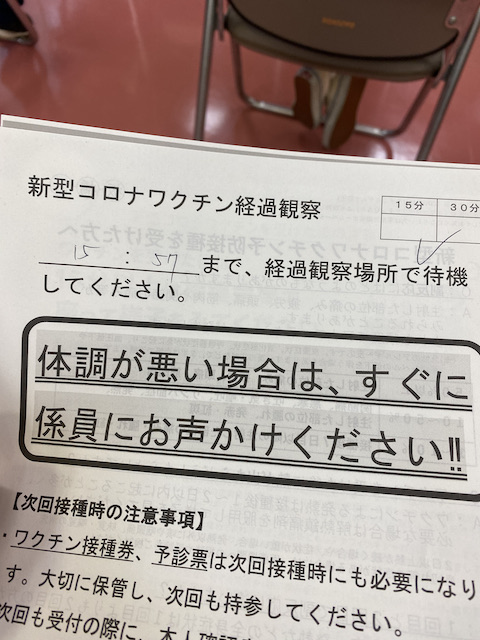 新型コロナワクチン経過観察
15分 30分
15:57まで、経過観察場所で待機
してください。
体調が悪い場合は、すぐに
係員にお声かけください!!
【次回接種時の注意事項】
・ワクチン接種券、予診票は次回接種時にも必要になり
す。大切に保管し、次回も持参してください。
次回も受付の際に、本人確認